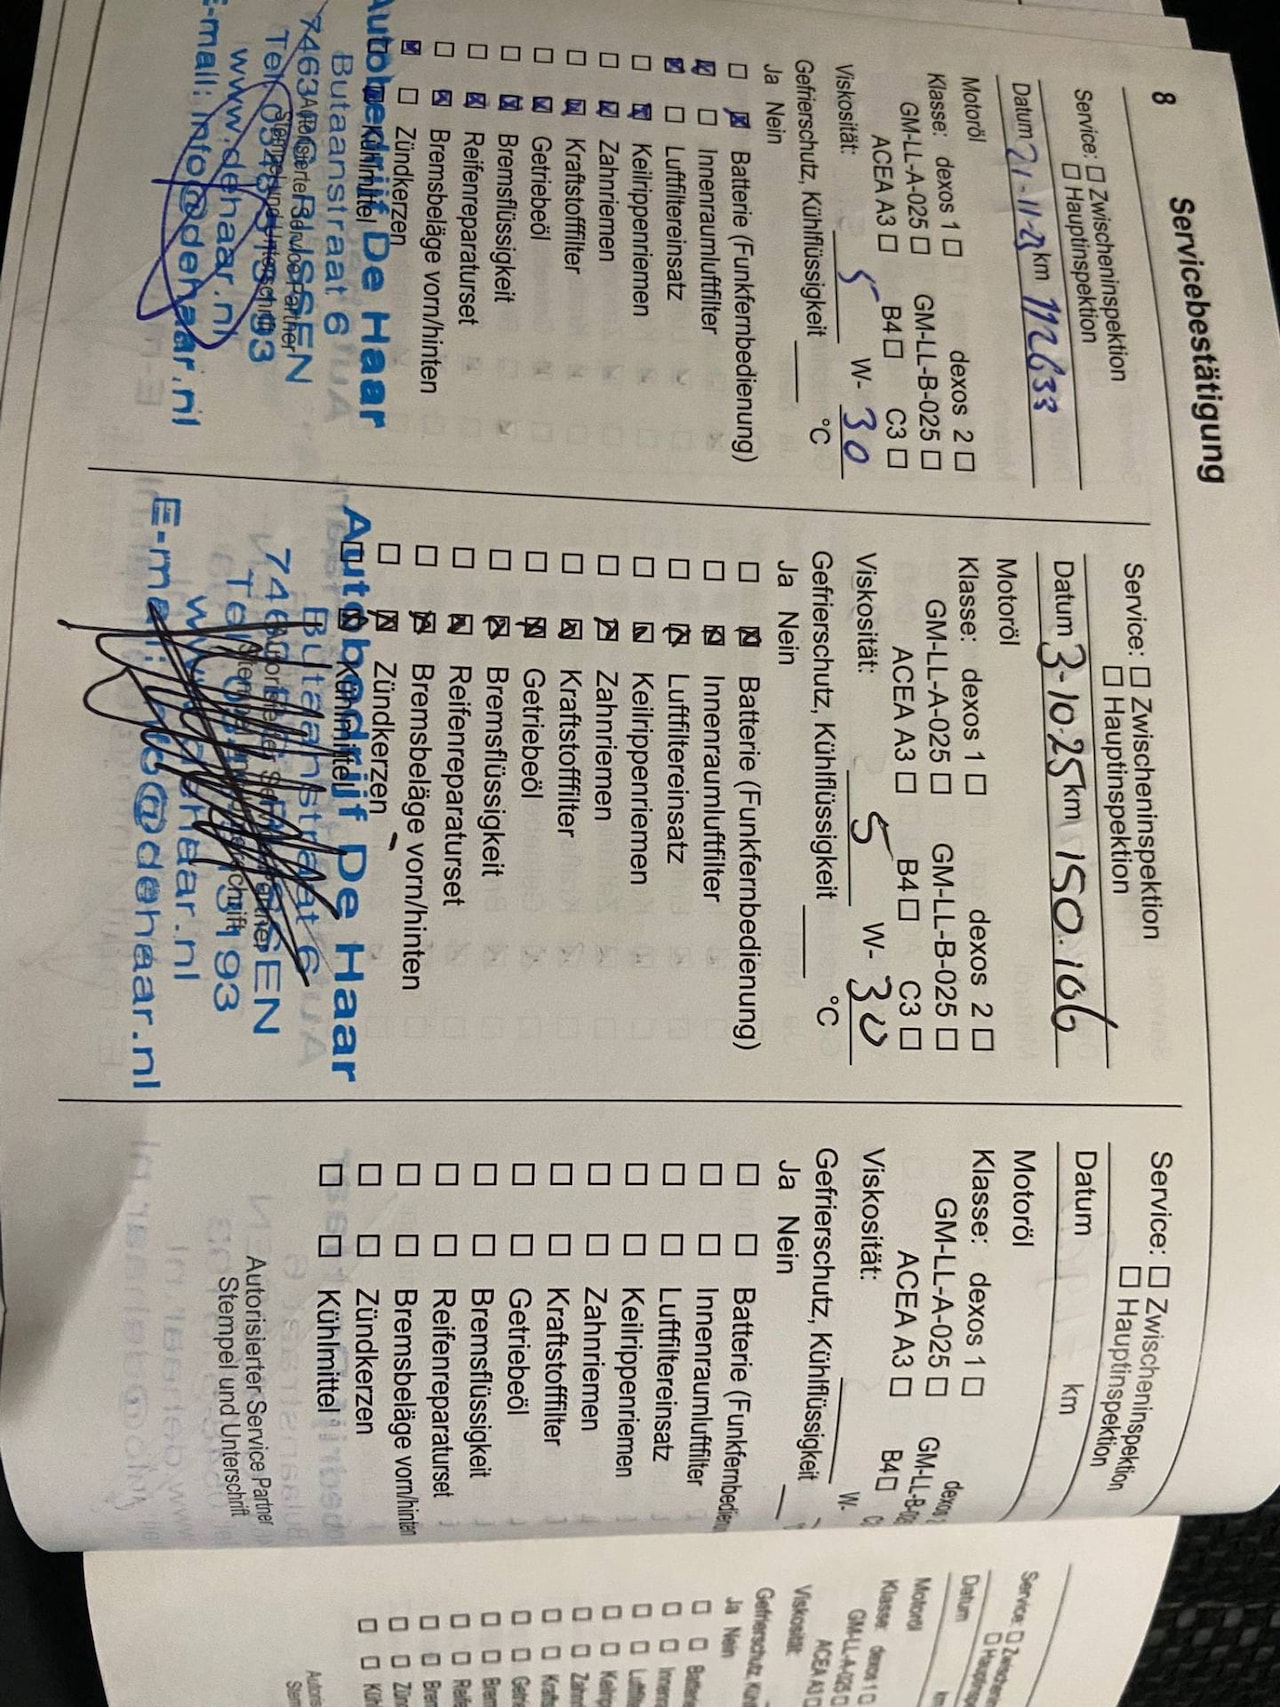 8
Servicebestätigung
Service: ☐ Zwischeninspektion
☐ Hauptinspektion
Datum 21-11-23 km 112633
Motoröl
Klasse: dexos 1 ☐ dexos 2 ☐
GM-LL-A-025 ☐ GM-LL-B-025 ☐
ACEA A3 ☐ B4 ☐ C3 ☐
Viskosität: 5 W- 30
Gefrierschutz, Kühlflüssigkeit ____ °C
Ja Nein
☐ ☒ Batterie (Funkfernbedienung)
☒ ☐ Innenraumluftfilter
☒ ☐ Luftfiltereinsatz
☐ ☒ Keilrippenriemen
☐ ☒ Zahnriemen
☐ ☒ Kraftstofffilter
☐ ☒ Getriebeöl
☐ ☒ Bremsflüssigkeit
☐ ☒ Reifenreparaturset
☐ ☒ Bremsbeläge vorn/hinten
☒ ☐ Zündkerzen
Kühlmittel
Autorisierter Service Partner
Stempel und Unterschrift
Autobedrijf De Haar
Butaanstraat 6
7463 RIJSSEN
www.dehaar.nl
E-mail: info@dehaar.nl
Service: ☐ Zwischeninspektion
☐ Hauptinspektion
Datum 3-10-25 km 150.106
Motoröl
Klasse: dexos 1 ☐ dexos 2 ☐
GM-LL-A-025 ☐ GM-LL-B-025 ☐
ACEA A3 ☐ B4 ☐ C3 ☐
Viskosität: 5 W- 30
Gefrierschutz, Kühlflüssigkeit ____ °C
Ja Nein
☐ ☒ Batterie (Funkfernbedienung)
☐ ☒ Innenraumluftfilter
☐ ☒ Luftfiltereinsatz
☐ ☒ Keilrippenriemen
☐ ☒ Zahnriemen
☐ ☒ Kraftstofffilter
☐ ☒ Getriebeöl
☐ ☒ Bremsflüssigkeit
☐ ☒ Reifenreparaturset
☐ ☒ Bremsbeläge vorn/hinten
☐ ☒ Zündkerzen
☐ ☒ Kühlmittel
Autobedrijf De Haar
Butaanstraat 6
E-mail: info@dehaar.nl
Service: ☐ Zwischeninspektion
☐ Hauptinspektion
Datum km
Motoröl
Klasse: dexos 1 ☐ dexos
GM-LL-A-025 ☐ GM-LL-B-02
ACEA A3 ☐ B4 ☐
Viskosität: ____ W-
Gefrierschutz, Kühlflüssigkeit
Ja Nein
☐ ☐ Batterie (Funkfernbedien
☐ ☐ Innenraumluftfilter
☐ ☐ Luftfiltereinsatz
☐ ☐ Keilrippenriemen
☐ ☐ Zahnriemen
☐ ☐ Kraftstofffilter
☐ ☐ Getriebeöl
☐ ☐ Bremsflüssigkeit
☐ ☐ Reifenreparaturset
☐ ☐ Bremsbeläge vorn/hinten
☐ ☐ Zündkerzen
☐ ☐ Kühlmittel
Autorisierter Service Partner
Stempel und Unterschrift
Service: ☐
Datum
Motoröl
Klasse: dexos 1 ☐
GM-LL-A-025 ☐
ACEA A3 ☐
Viskosität:
Gefrierschutz, Küh
Ja Nein